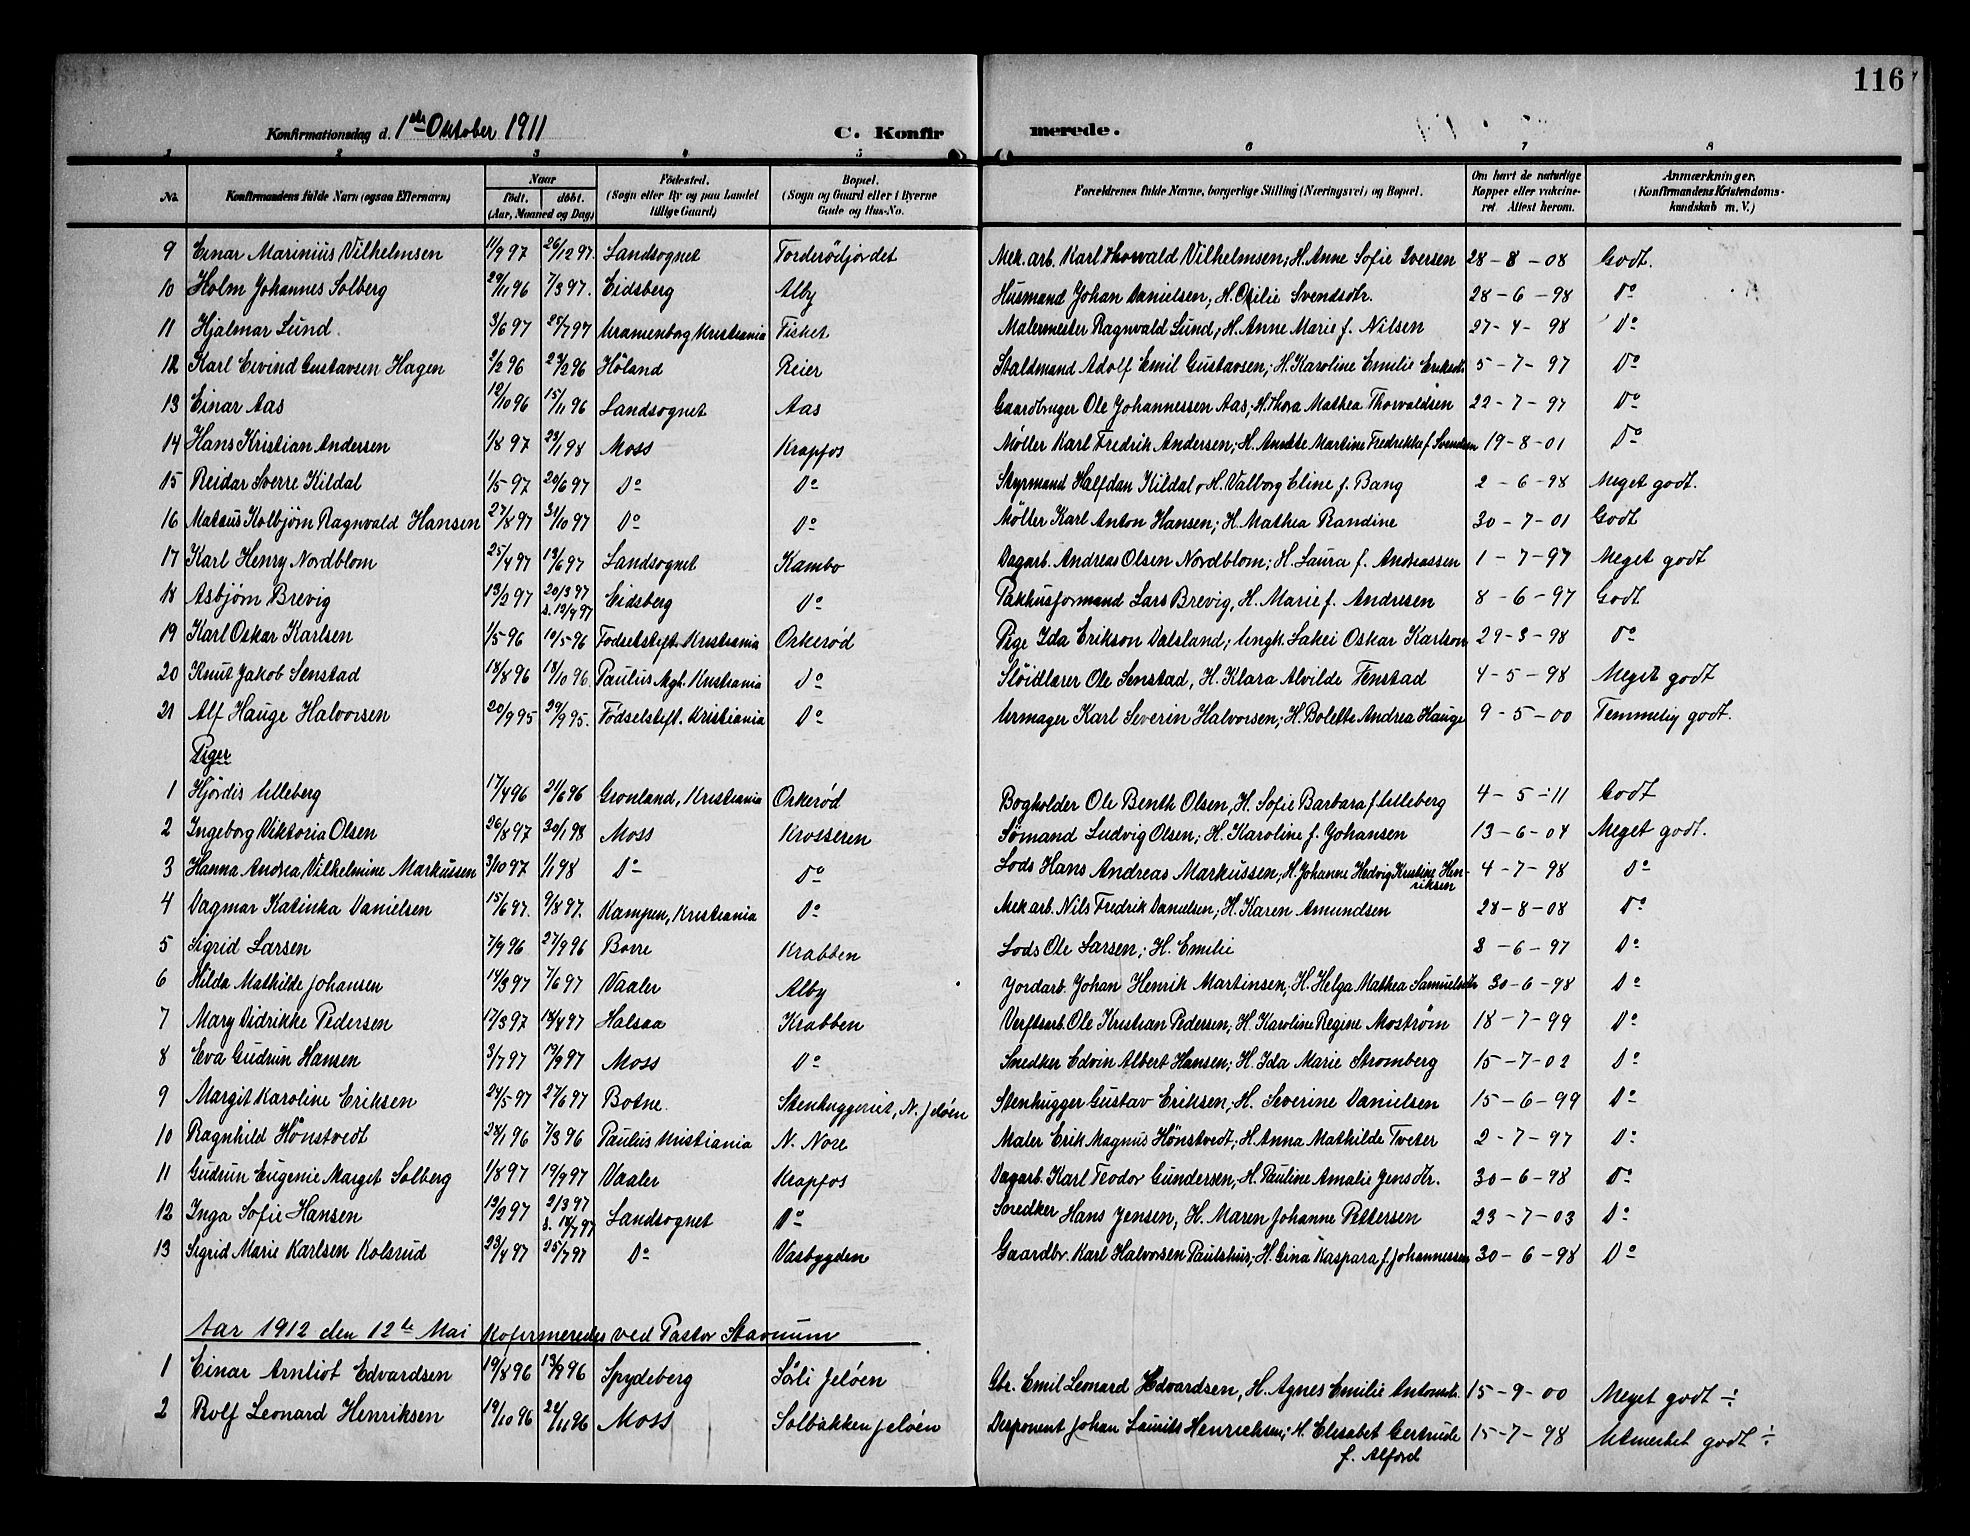 116
Konfirmationsdag d. 1ste Oktober 1911 C. Konfirmerede.
1 2 3 4 5 6 7 8
No. Konfirmandens fulde Navn (ogsaa Efternavn) Naar født. døbt. (Aar, Maaned og Dag) Fødested. (Sogn eller By og paa Landet tillige Gaard) Bopæl. (Sogn og Gaard eller i Byerne Gade og Hus-No. Forældrenes fulde Navne, borgerlige Stilling (Næringsvei) og Bopæl. Om havt de naturlige Kopper eller vakcineret. Attest herom. Anmærkninger. (Konfirmandens Kristendomskundskab m. V.)
9 Einar Marinius Vilhelmsen 11/9 97 26/12 97 Landsognet Torderødjordet Mek. arb. Karl Thorvald Vilhelmsen; H. Anne Sofie Iversen 28-8-08 Godt.
10 Holm Johannes Solberg 29/11 96 7/3 97. Eidsberg Alby Husmand Johan Danielsen, H. Otilie Svendsdtr. 28-6-98 Do
11 Hjalmar Lund. 3/6 97 25/7 97 Uranienborg Kristiania Fisket Malermester Ragnvald Lund, H. Anne Marie f. Nilsen 27-4-98 Do
12 Karl Eivind Gustavsen Hagen 2/2 96 23/2 96 Høland Reier Staldmand Adolf Emil Gustavsen; H. Karoline Emilie Eriksdt. 5-7-97 Do
13 Einar Aas 12/10 96 15/11 96 Landsognet Aas Gaardbruger Ole Johannessen Aas, H. Thora Mathea Thorvaldsen 22-7-97 Do
14 Hans Kristian Andersen 1/8 97 23/1 98 Moss Krapfos Møller Karl Fredrik Andersen; H. Anette Martine Fredrikke f. Svendsen 19-8-01 Do
15 Reidar Sverre Kildal 1/5 97 20/6 97 Do Do Styrmand Halfdan Kildal, H. Valborg Eline f. Bang 2-6-98 Meget godt.
16 Mataus Kolbjørn Ragnvald Hansen 27/8 97 31/10 97 Do Do Møller Karl Anton Hansen; H. Mathea Randine 30-7-01 Godt
17 Karl Henry Nordblom 25/4 97 19/6 97 Landsognet Kambo Dagarb. Andreas Olsen Nordblom; H. Laura f. Andreassen 1-7-97 Meget godt
18 Asbjørn Brevig 13/2 97 20/3 97 s. 12/9 97 Eidsberg Do Pakhusformand Lars Brevig, H. Marie f. Andresen 8-6-97 Godt
19 Karl Oskar Karlsen 1/5 96 10/5 96 Fødselstift. Kristiania Orkerød Pige Ida Erikson Dalsland; Ungk. Lakei Oskar Karlson 29-3-98 Do
20 Knut Jakob Senstad 18/8 96 18/10 96. Paulus Mgh. Kristiania Do Sløidlærer Ole Senstad, H. Klara Alvilde Fenstad 4-5-98 Meget godt
21 Alf Hauge Halvorsen 20/9 95 29/9 95. Fødselstift. Kristiania Do Urmager Karl Severin Halvorsen; H. Bolette Andrea Hauge 9-5-00 Temmelig godt.
Piger
1 Hjørdis Ulleberg 17/4 96 21/6 96 Grønland, Kristiania Orkerød Bogholder Ole Benth Olsen, H. Sofie Barbara f. Ulleberg 4-5-11 Godt
2 Ingeborg Viktoria Olsen 26/8 97 30/1 98 Moss Krosseren Sømand Ludvig Olsen; H. Karoline f. Johansen 13-6-04 Meget godt.
3 Hanna Andrea Vilhelmine Markussen 3/10 97 1/1 98 Do Do Lods Hans Andreas Markussen; H. Johanne Hedvig Kristine Henriksen 4-7-98 Do
4 Dagmar Katinka Danielsen 15/6 97. 9/8 97. Kampen, Kristiania Do Mek arb. Nils Fredrik Danielsen; H. Karen Amundsen 28-8-08 Do
5 Sigrid Larsen 7/9 96 27/9 96 Borre Krabben Lods Ole Larsen; H. Emilie 3-6-97 Do
6 Hilda Mathilde Johansen 14/3 97 7/6 97 Vaaler Alby Jordarb. Johan Henrik Martinsen, H. Helga Mathea Samuelsdtr 30-6-98 Do
7 Mary Didrikke Pedersen 17/3 97 18/4 97 Halsaa Krabben Verftsarb. Ole Kristian Pedersen; H. Karoline Regine Mostrøm 18-7-99 Do
8 Eva Gudrun Hansen 3/7 97 19/9 97 Moss Do Snedker Edvin Albert Hansen; H. Ida Marie Strømberg 15-7-02 Do
9 Margit Karoline Eriksen 24/5 97 27/6 97 Botne Stenhuggeriet, N. Jeløen Stenhugger Gustav Eriksen; H. Severine Danielsen 15-6-99 Do
10 Ragnhild Hønstvedt 24/1 96 7/3 96 Paulus Kristiania N. Nore Maler Erik Magnus Hønstvedt; H. Anna Mathilde Tveter 2-7-97 Do
11 Gudrun Eugenie Marget Solberg 1/8 97 19/9 97 Vaaler Krapfos Dagarb. Karl Teodor Gundersen, H. Pauline Amalie Jensdtr. 30-6-98 Do
12 Inga Sofie Hansen 12/2 97 2/3 97 s. 18/7 97 Landsognet Do Snedker Hans Jensen, H. Maren Johanne Pettersen 23-7-03 Do
13 Sigrid Marie Karlsen Kolsrud 23/4 97 25/7 97 Do Vasbygden Gaardbr. Karl Halvorsen Paulshus, H. Gina Kaspara f. Johannessen 30-6-98 Do
Aar 1912 den 12te Mai Kofirmeredes ved Pastor Stavnum
1 Einar Arnliot Edvardsen 19/8 96 13/9 96 Spydeberg Sørli Jeløen Gbr. Emil Leonard Edvardsen, H. Agnes Emilie Antonsdt. 15-9-00 Meget godt ÷
2 Rolf Leonard Henriksen 19/10 96 22/11 96 Moss Solbakken Jeløen Disponent Johan Laurits Henrichsen; H. Elisabet Gertrude f. Alford 15-7-98 Utmerket godt ÷